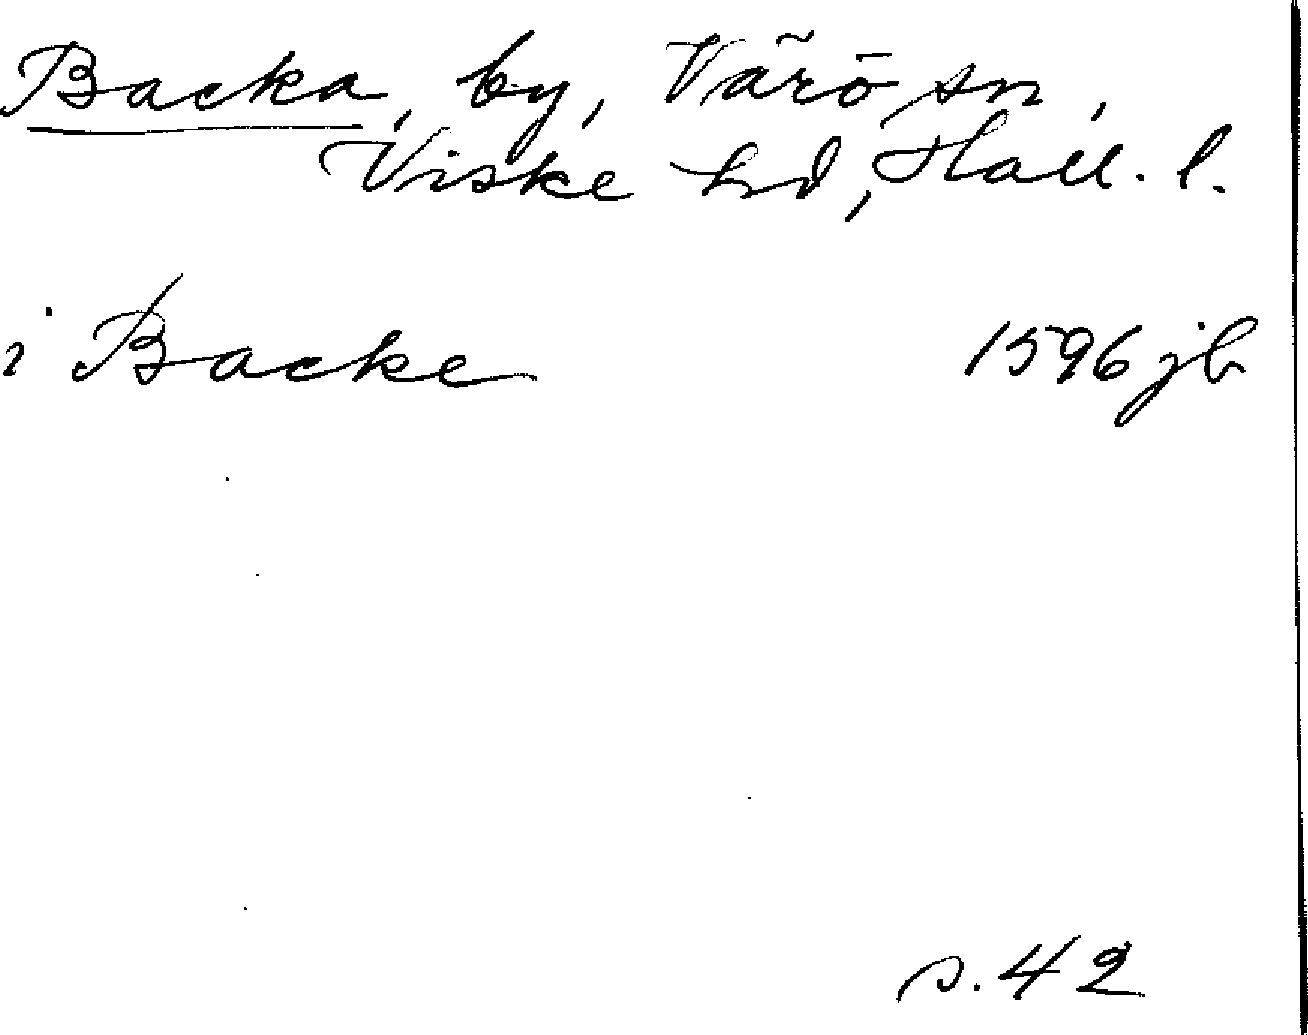 Backa, by, Värö sn,
Viske hd, Hall. l.
i Backe 1596 jb
s. 42